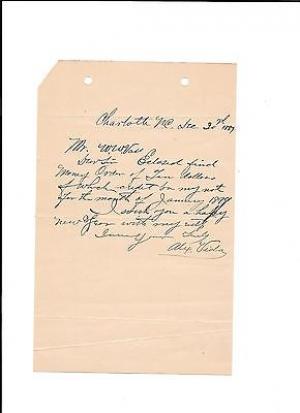 Charlotte NC Dec 30th
Mr. W.W.
Dear Sir Enclosed find
Money Order of Ten Dollars
Which credit on my note
for the month of January
I wish you a happy
New Year with my
I am Your Truly
Alex